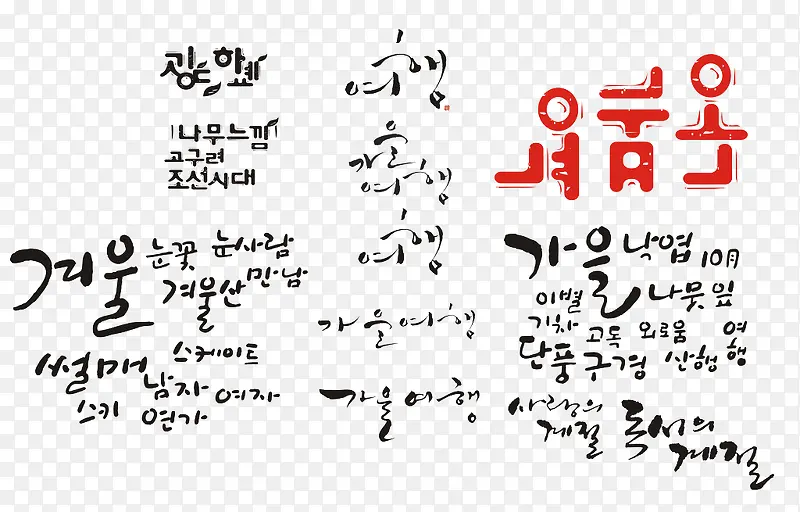 나무느낌
고구려
조선시대
여행
가을
여행
여행
가을여행
가을여행
겨울
눈꽃 눈사람
겨울산 만남
썰매 스케이트
남자 여자
스키 연가
가을 낙엽 10月
이별 나뭇잎
기차 고독 외로움 여행
단풍 구경 산행
사랑의
계절
독서의
계절